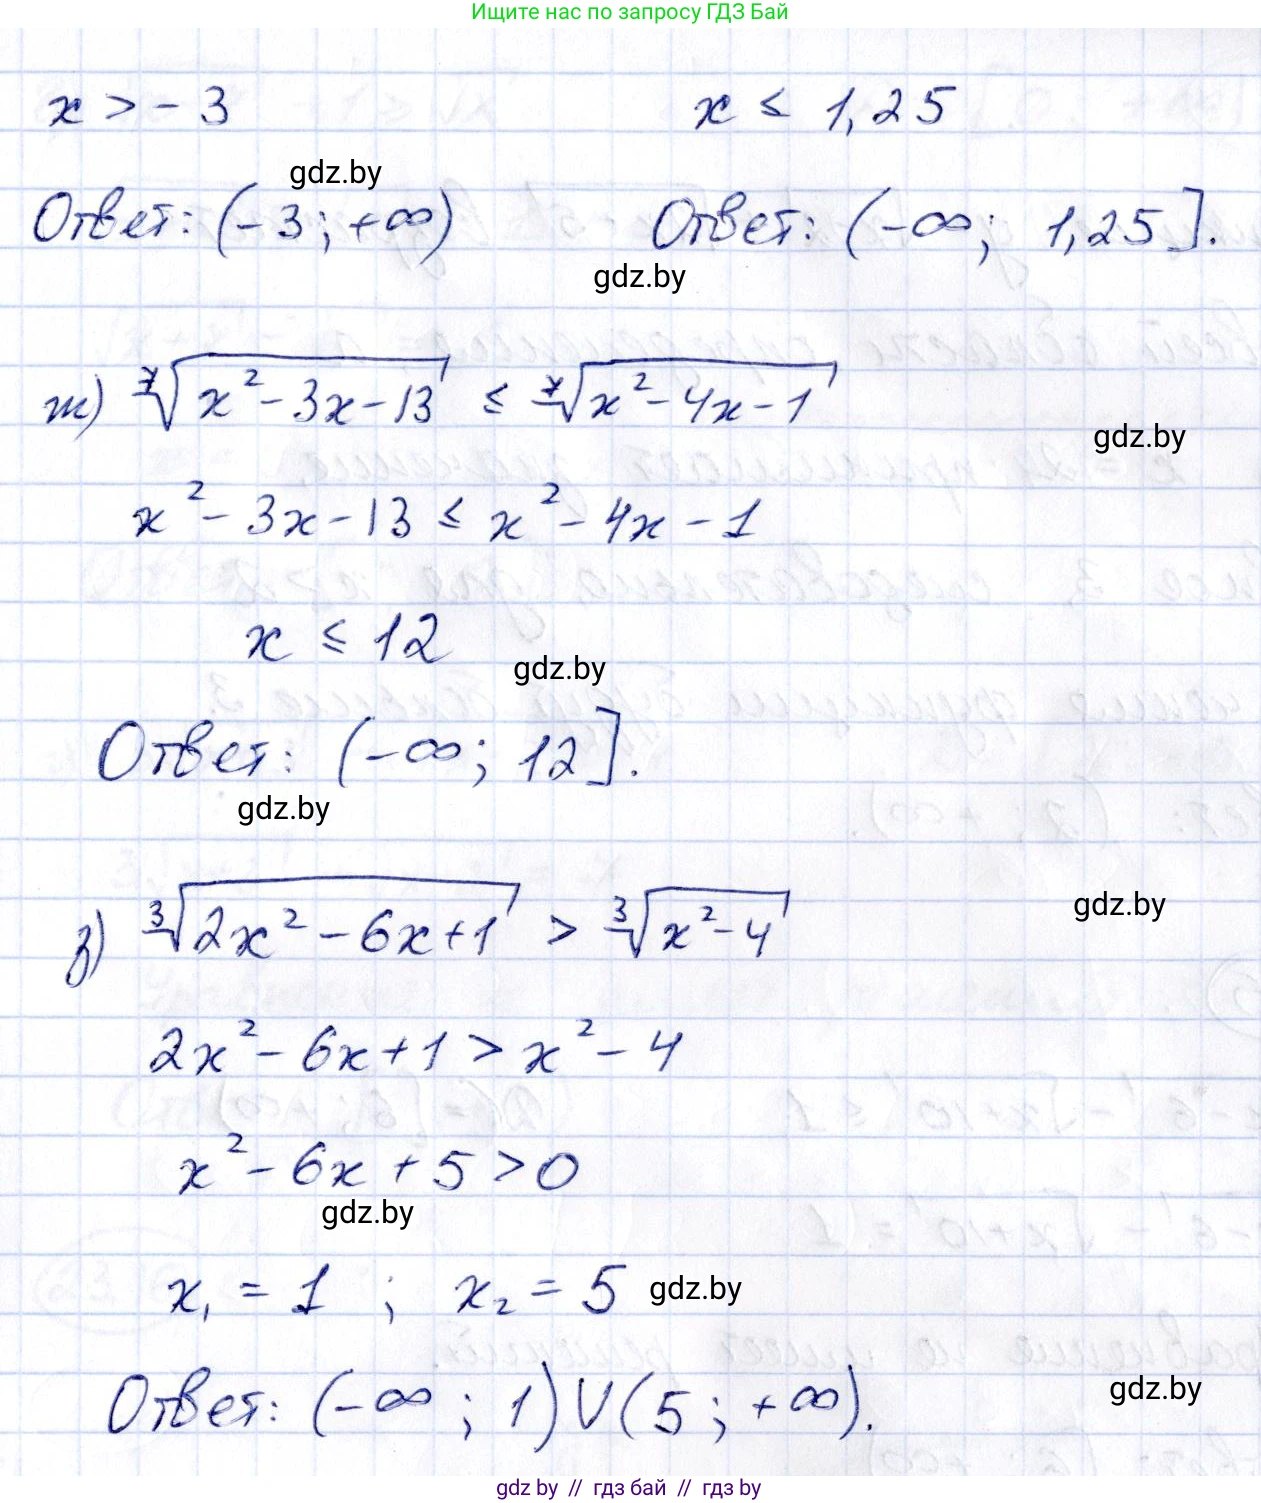 Ищите нас по запросу ГДЗ Бай
x > - 3 x ≤ 1,25
gdz.by
Ответ: (- 3 ; +∞) Ответ: (-∞ ; 1,25].
gdz.by
ж) ⁷√(x² - 3x - 13) ≤ ⁷√(x² - 4x - 1)
gdz.by
x² - 3x - 13 ≤ x² - 4x - 1
x ≤ 12
gdz.by
Ответ: (-∞; 12].
gdz.by
з) ³√(2x² - 6x + 1) > ³√(x² - 4)
gdz.by
2x² - 6x + 1 > x² - 4
x² - 6x + 5 > 0
gdz.by
x₁ = 1 ; x₂ = 5 gdz.by
Ответ: (-∞ ; 1) ∪ (5 ; +∞).
gdz.by
gdz by // гдз бай // гдз by